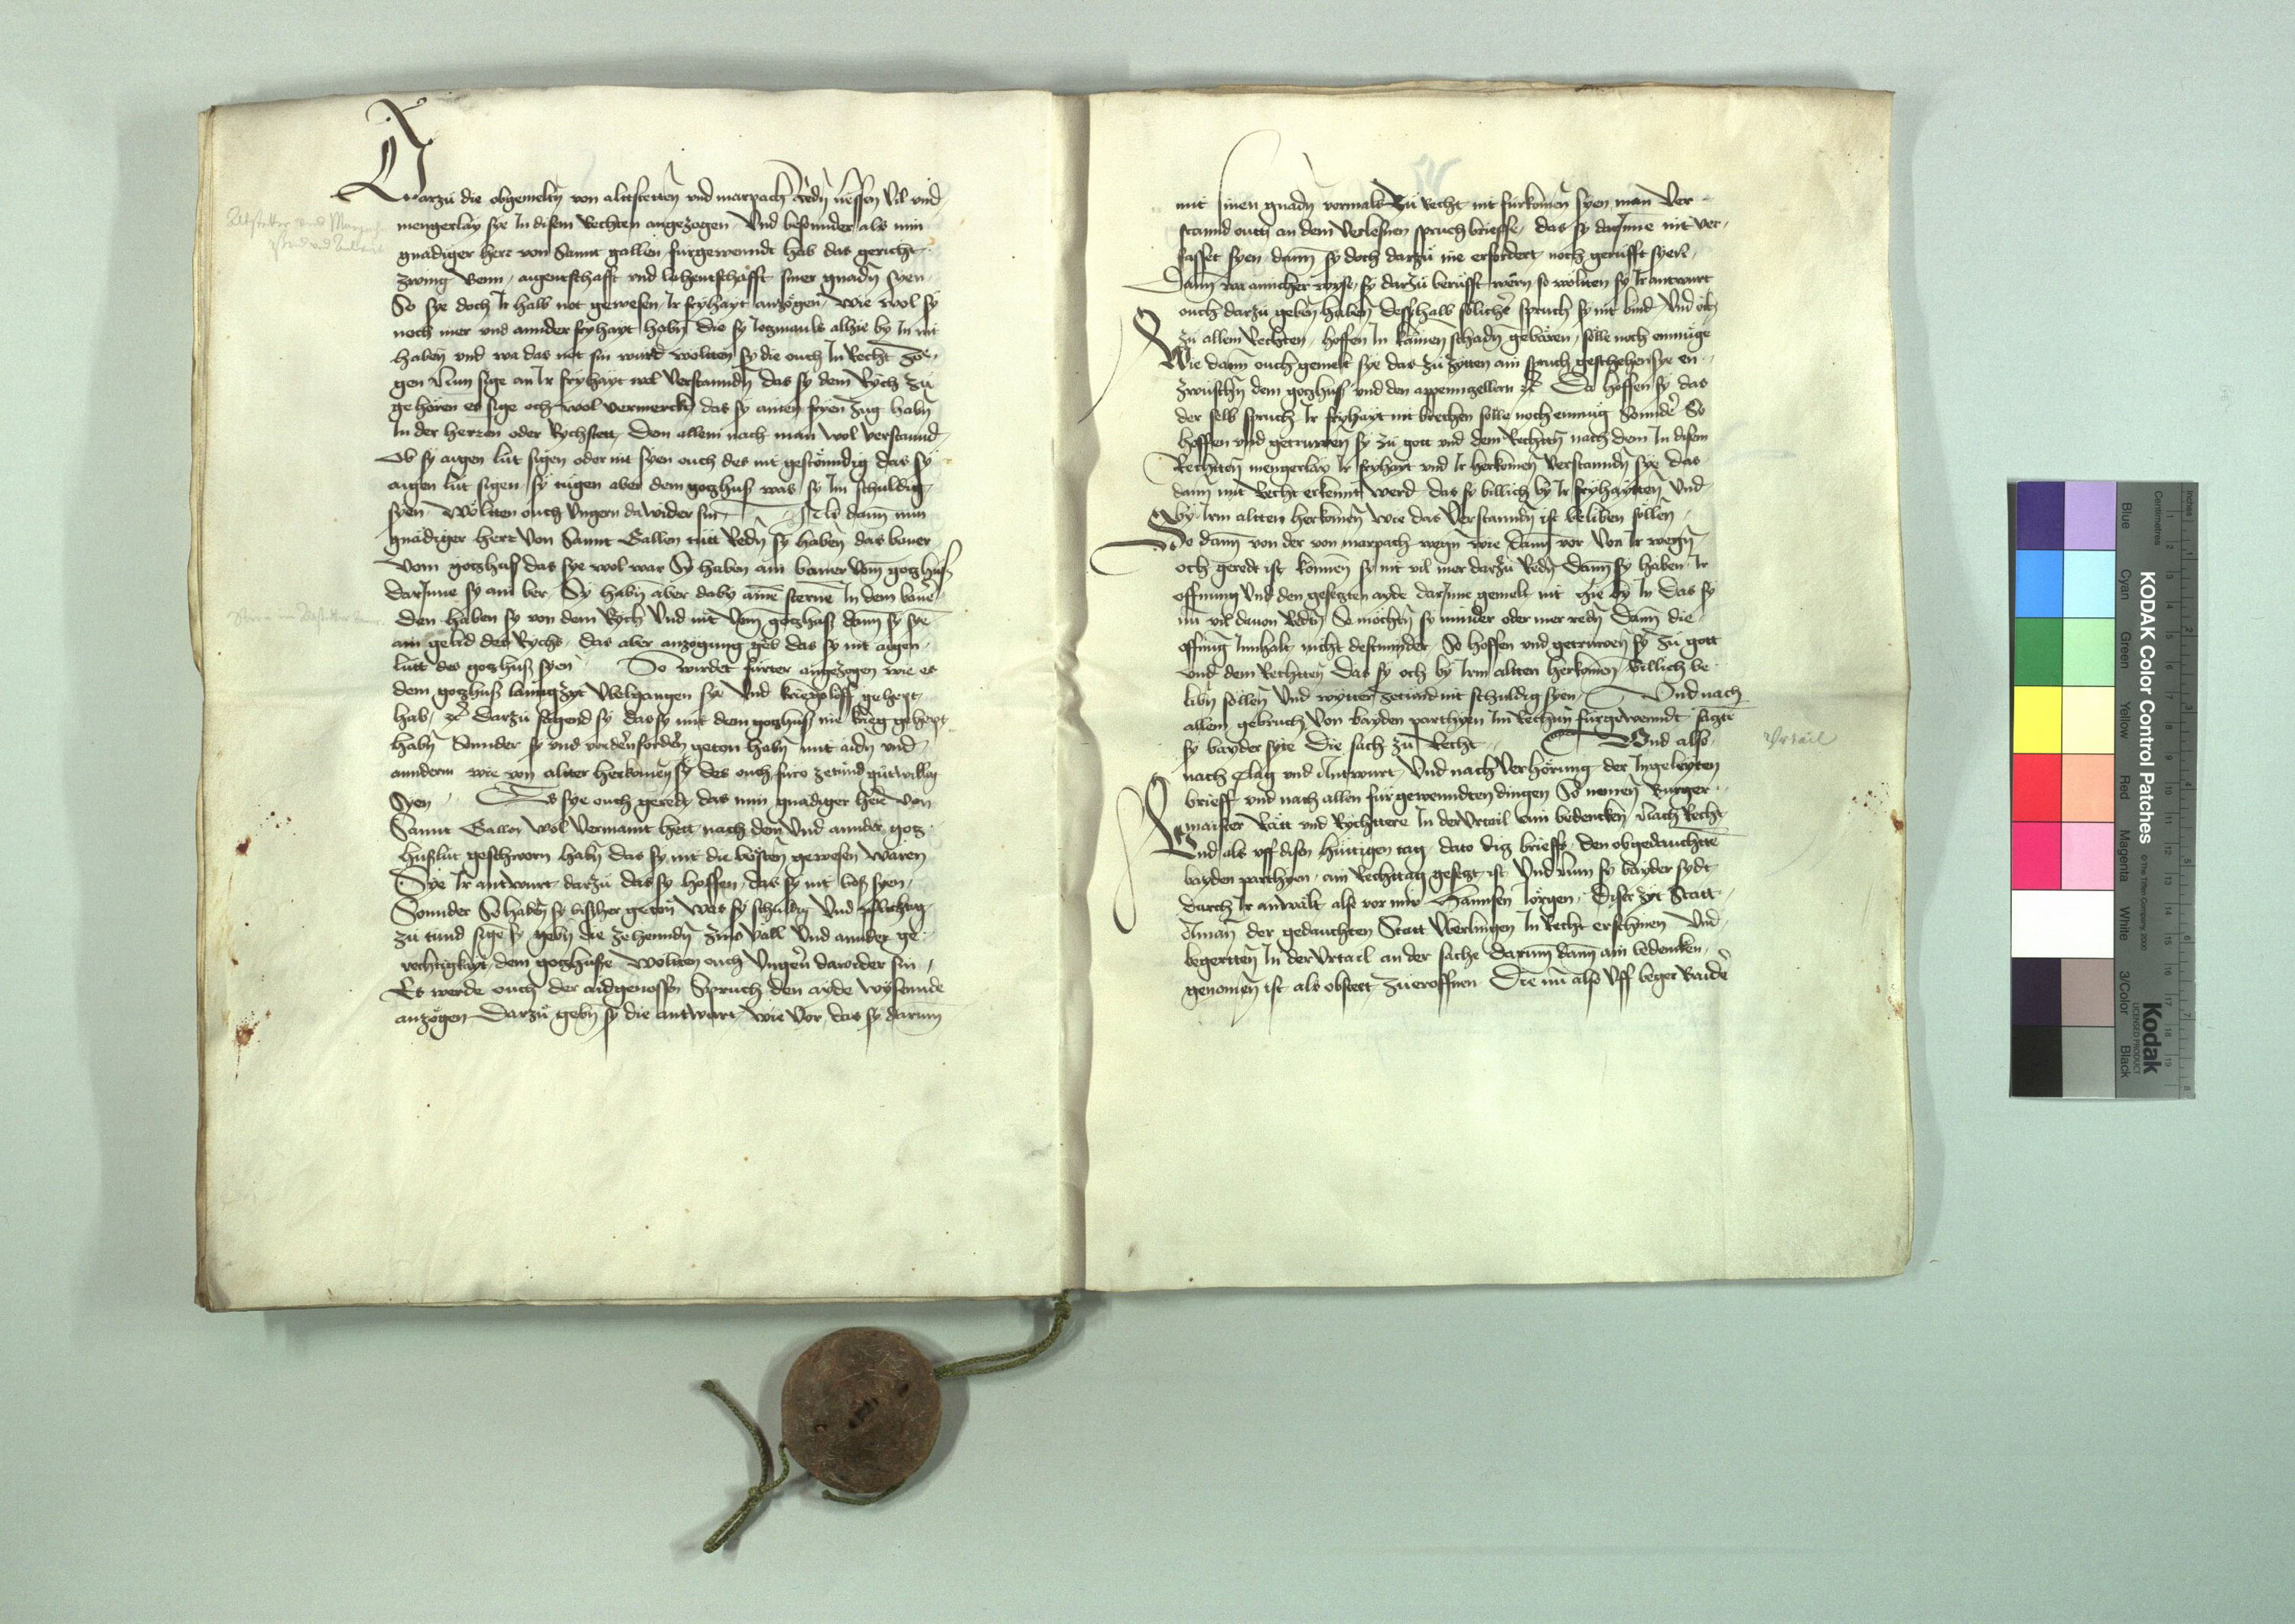 Darzu die obgemeltn von altstettn vnd marpach Redn liessen Vil vnd
mengerlay sye In disem Rechten angezogen Vnd besonnder als min
gnädiger herr von Sannt gallen fürgewenndt hab das gericht
zwing Benn, aigentschafft vnd lehentschafft siner gnadn syen
So sye doch Ir halb not gewesen, Ir fryhayt anzögen, Wie wol sy
noch mer vnd annder fryhayt habn die sy Jetzmauls alhie by In nit
haben vnd wa das not sin wurd wöltten sy die ouch In Recht zö
gen Nun sige an Ir fryhayt wol Verstanndn das sy dem Rych zu
gehören es sige och wol vermerckt das sy ainen fryen zug habn
In der herren oder Rychstett, Dem allem nach man wol verstannd
Ob sy aigen lüt sigen oder nit syen ouch des nit gestönndig das sy
aigen lüt sigen sy tügen aber dem gotzhuss was sy Im schuldig
syen Wöltten ouch Vngern dawider sin Als dann min
gnädiger herr Von Sannt Gallen tütt Redn sy haben das baner
Vom gotzhuss das sye wol war Sy haben ain baner Vom gotzhuss
darInne sy ain ber, Sy habn aber daby ainen sternen In dem baner
den haben sy von dem Rych Vnd nit Vom gotzhuss dann sy sye
ain gelid des Rychs, das aber anzögung geb das sy nit aigen
lütt des gotzhuss syen So wirdet fürter angezogen wie es
dem gotzhuss lanngzyt Vbelgangen sye Vnd kriegsloff gehept
hab, etc darzu sagend sy das sy mit dem gotzhuss nie krieg gehept
habn Sonnder sy vnd vordern geton habn mit aidn vnd
annderm wie von alter herkomen sy des ouch füro zetund gutwillig
Syen Es sye ouch geredt das min gnädiger herr von
Sannt Gallen Wol Vermaint hett nach dem Vnd annder gotz
husslüt geschworn habn das sy nit die bösten gewesen wären
Sye Ir antwurt darzu das sy hoffen, das sy nit böss syen,
Sonnder So haben sy bissher geton Was sy schuldig Vnd pflichtig
zu tund sige sy gebn die zehenndn zins Väll Vnd annder ge
rechtigkayt dem gotzhusse Wöltten ouch Vngern dawider sin
Es werde ouch der aidgenossen Spruch den ayde Wysennde
anzögen Darzu gebn sy die antwurt Wie Vor, das sy darum
Altstetter und Marpach
Vrtail
mit sinen gnadn vormals Zu Recht nit fürkomen syen man Ver
stannd ouch an dem Verlesnen spruchbrieffe, das sy darInne nit ver
fasset syen dann sy doch darzu nie erfordert noch gerüfft syen,
Dann wa ainicher wyse, sy darzu berüfft wern so wöltten sy Ir antwurt
ouch darzu geben haben desshalb sölicher spruch sy nit bind Vnd och
zu allem Rechten, hoffen In kainen schadn gebären, sölle noch enmüge
Wie dann ouch gemelt sye das zu zytten ain spruch geschehen sye en
zwüschn dem gotzhuss vnd den appennzellern etc Da hoffen sy das
der selb spruch Ir fryhayt nit brechen sölle noch enmüg Sonnder So
hoffen vnd getruwen sy zu gott vnd dem Rechttn nach dem In disem
Rechtten mengerlay Ir fryhayt vnd Ir herkomen Verstanndn sye das
dann mit Recht erkennt werd das sy billich by Ir fryhaytten Vnd
by Irm altten herkomen wie das Verstanndn ist beliben söllen
So dann von der von marpach wegn wie dann vor Von Ir wegn
och geredt ist können sy nit vil mer darzu Redn Dann sy haben Ir
offnung Vnd den gesetzten ayde darInne gemelt nit hie by In Das sy
nu vil dauon Redn Sy möchtn sy minder oder mer redn Dann die
offnung Innhalt nicht destminder, So hoffen vnd getruwen sy zu gott
vnd dem Rechtten Das sy och by Irm altten herkomen, Billich be
libn söllen Vnd wytter zetund nit schuldig syen, Vnd nach
allem gebruch Von bayden parthyen Im Rechtn fürgewenndt sagte
sy bayder syte Die sach zu Recht Vnd also
nach Clag vnd Antwurt Vnd nach Verhörung der Ingeleyten
brieff vnd nach allen fürgewenndten dingen So nomen Burger
maister Rätt vnd Rychttere In der Vrtail ein bedencken Nach Recht
Vnd als vff disen hüttigen tag dato diz brieffs, den obgedauchten
bayden parthyen, ain Rechttag gesetzt ist Vnd nun sy bayder sydt
durch Ir anwält also vor mir Hannsen Jörgen, Diser Zyt Statt
Aman der gedauchten Statt Vberlingen In Recht erschinen Vnd
begertten In der Vrtail an der sache darum dann ain bedencken
genomen ist als obstett zu eroffnen Die nu also Vff beger Baider